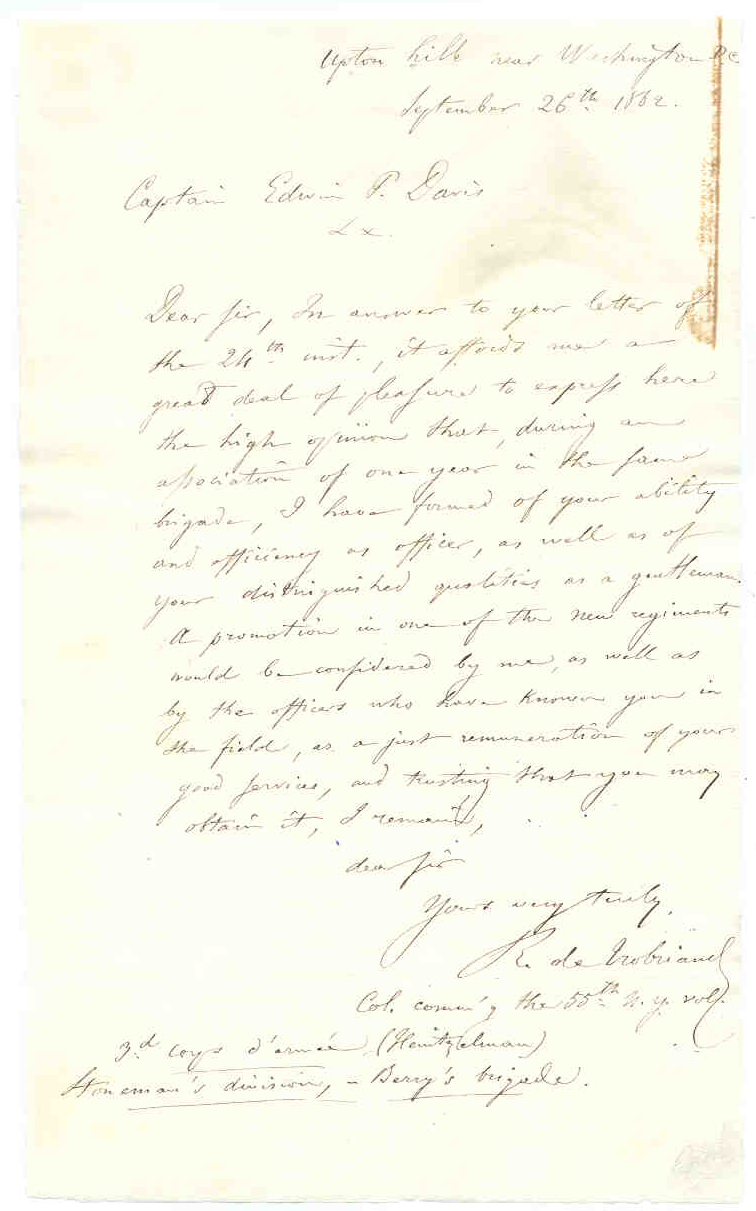 Upton hill near Washington D.C.
September 26th 1862.
Captain Edwin P. Davis
Dear Sir, In answer to your letter of
the 24th inst., it affords me a
great deal of pleasure to express here
the high opinion that, during an
association of one year in the same
brigade, I have formed of your ability
and efficiency as officer, as well as of
your distinguished qualities as a gentleman.
A promotion in one of the new regiments
would be considered by me, as well as
by the officers who have known you in
the field, as a just remuneration of your
good services, and trusting that you may
obtain it, I remain,
dear Sir
Yours very truly,
R. de Trobriand
Col. comm'g the 55th N. Y. vol.
3d corps d'armée (Heintzelman)
Stoneman's division, – Berry's brigade.